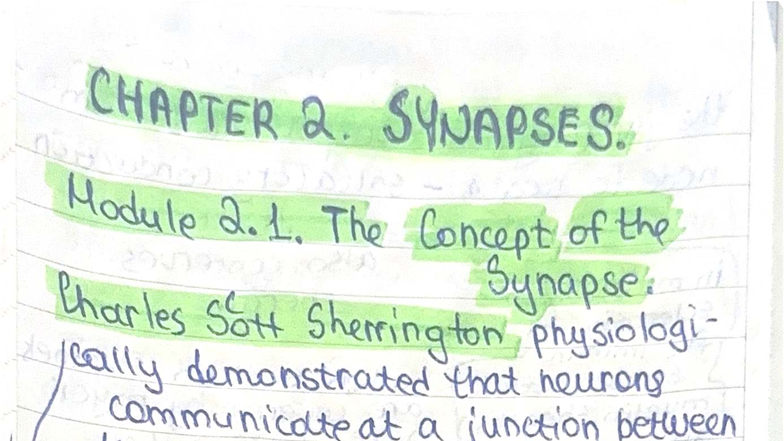 CHAPTER 2. SYNAPSES.
Module 2.1. The Concept of the
Synapse.
Charles Scott Sherrington physiologi-
cally demonstrated that neurons
communicate at a junction between